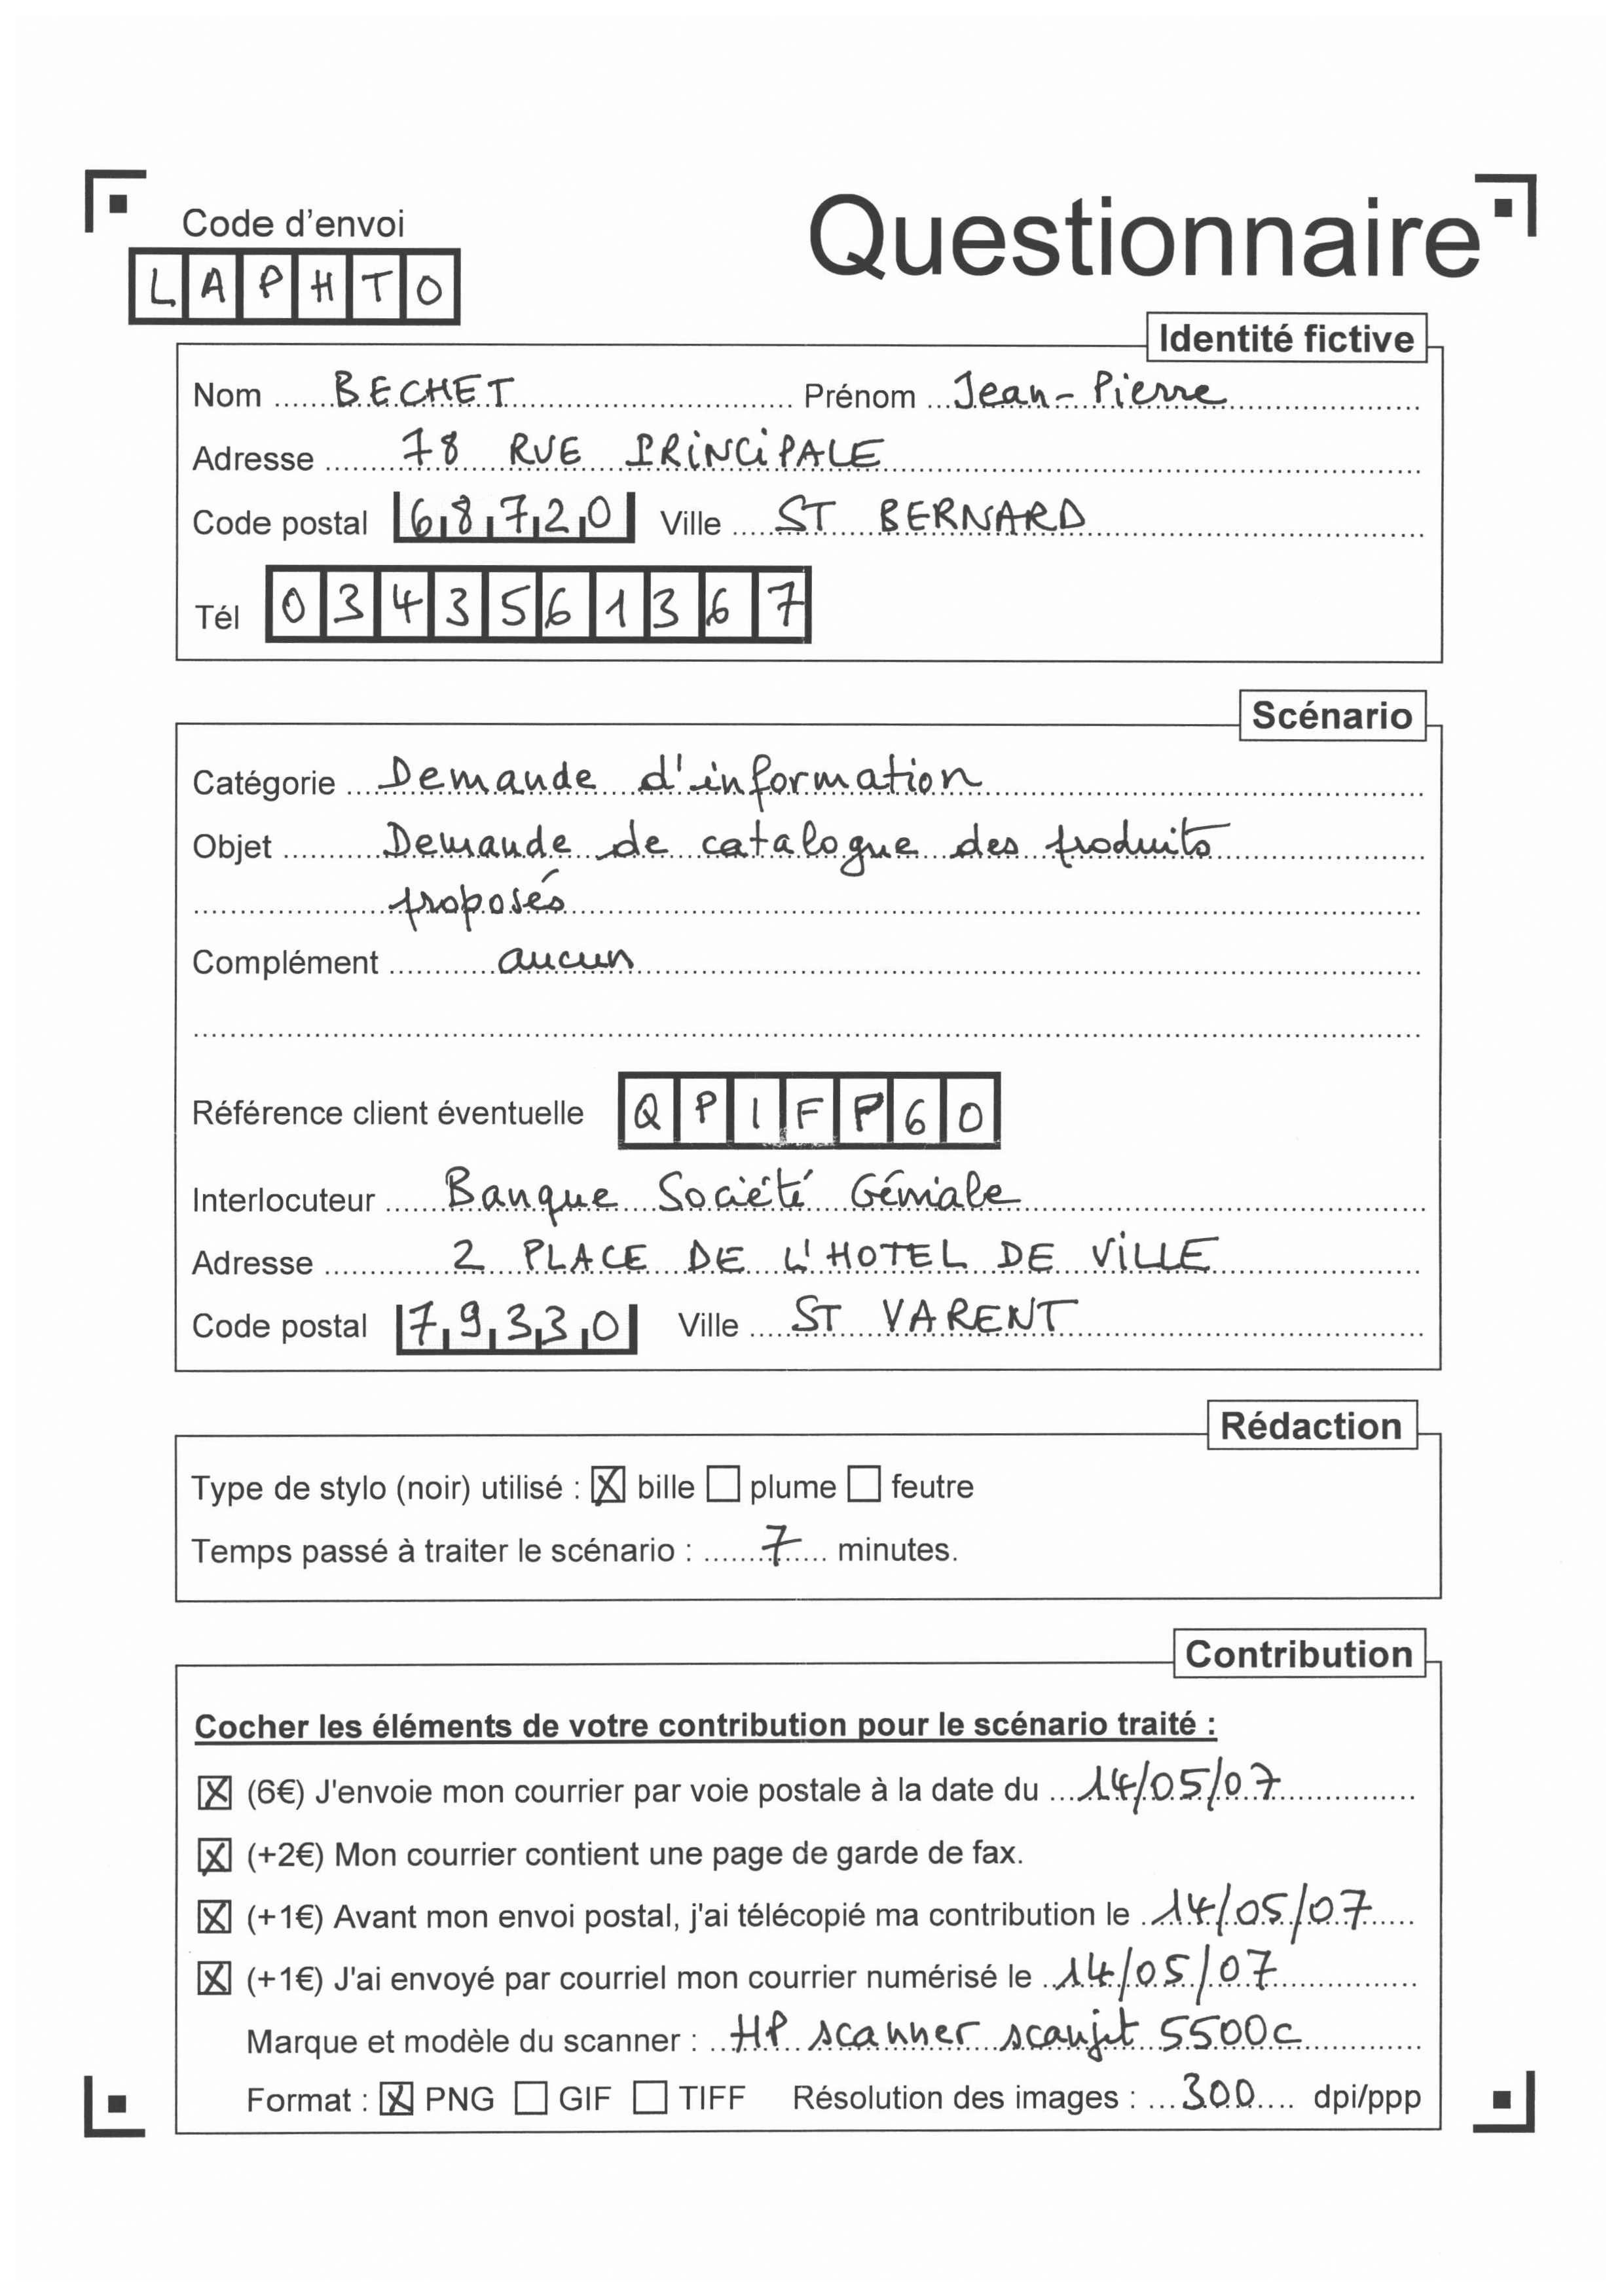 Code d'envoi
Questionnaire
LAPHTO
Identité fictive
Nom BECHET Prénom Jean-Pierre
Adresse 78 RUE PRINCIPALE
Code postal 68720 Ville ST BERNARD
Tél 0343561367
Scénario
Catégorie Demande d'information
Objet Demande de catalogue des produits
proposés
Complément aucun
Référence client éventuelle QPIFP60
Interlocuteur Banque Société Géniale
Adresse 2 PLACE DE L'HOTEL DE VILLE
Code postal 79330 Ville ST VARENT
Rédaction
Type de stylo (noir) utilisé : ☒ bille ☐ plume ☐ feutre
Temps passé à traiter le scénario : 7 minutes.
Contribution
Cocher les éléments de votre contribution pour le scénario traité :
☒ (6€) J'envoie mon courrier par voie postale à la date du 14/05/07
☒ (+2€) Mon courrier contient une page de garde de fax.
☒ (+1€) Avant mon envoi postal, j'ai télécopié ma contribution le 14/05/07
☒ (+1€) J'ai envoyé par courriel mon courrier numérisé le 14/05/07
Marque et modèle du scanner : HP scanner scanjet 5500c
Format : ☒ PNG ☐ GIF ☐ TIFF Résolution des images : 300 dpi/ppp